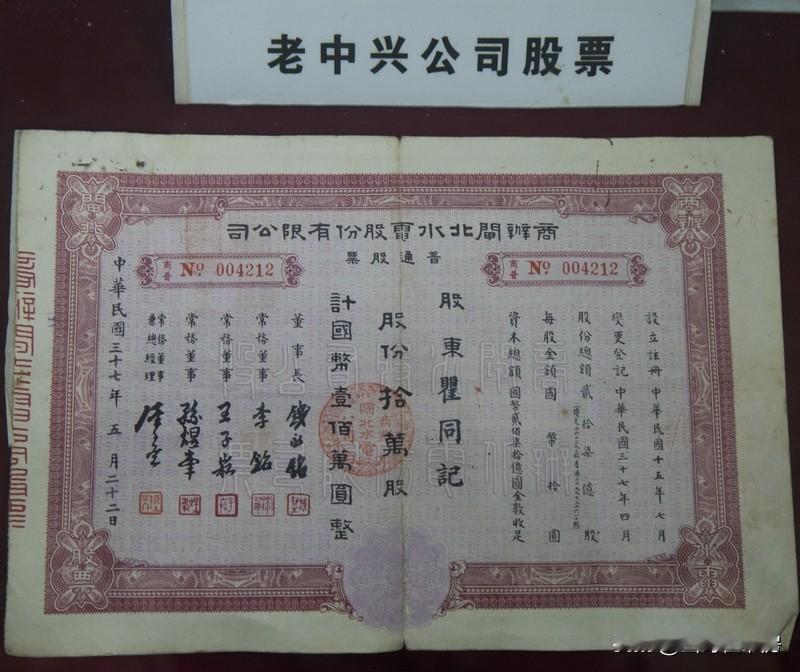 老中兴公司股票
商辦閘北水電股份有限公司
普通股票
商普 No 004212
商普 No 004212
設立註冊 中華民國十五年七月
變更登記 中華民國三十七年四月
股份總額貳拾柒億股
每股金額國幣拾圓
資本總額國幣貳佰柒拾億圓全數收足
股東瞿同記
股份拾萬股
計國幣壹佰萬圓整
董事長
常務董事 李銘
常務董事 王子崧
常務董事 孫煜峯
常務董事兼總經理
中華民國三十七年五月二十二日
閘北
商辦
股票
水電